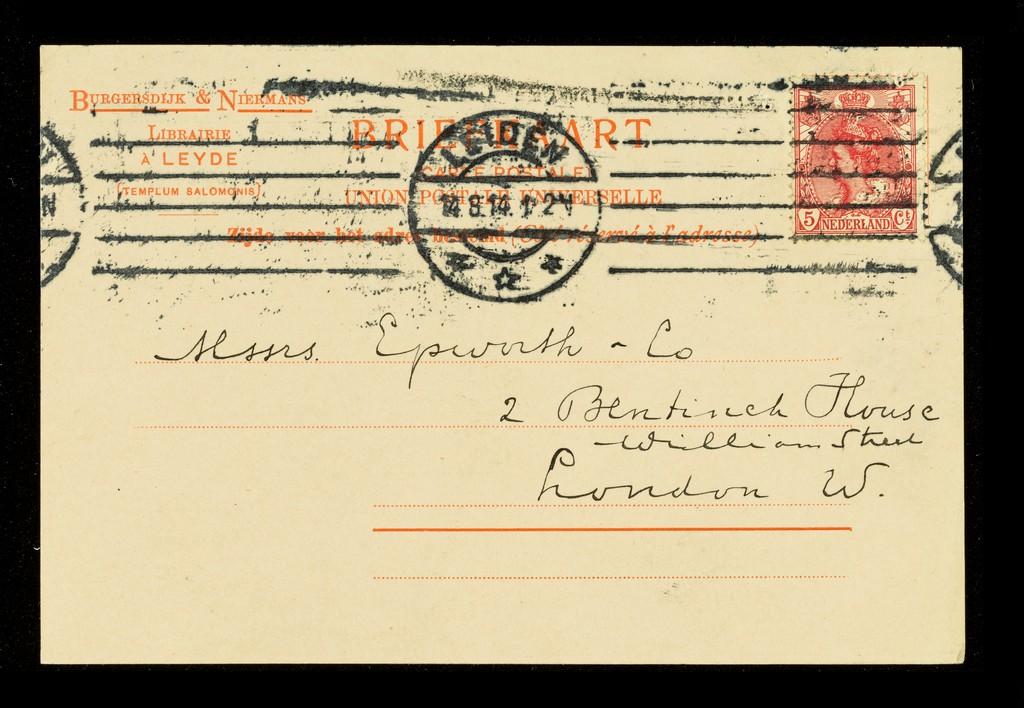 BURGERSDIJK & NIERMANS
LIBRAIRIE
À LEYDE
(TEMPLUM SALOMONIS)
BRIEFKAART
(CARTE POSTALE)
UNION POSTALE UNIVERSELLE
Zijde voor het adres bestemd (Côté réservé à l'adresse)
LEIDEN
14.8.14. 1-2N
5 NEDERLAND Ct
Messrs Epworth - Co
2 Bentinck House
William Street
London W.